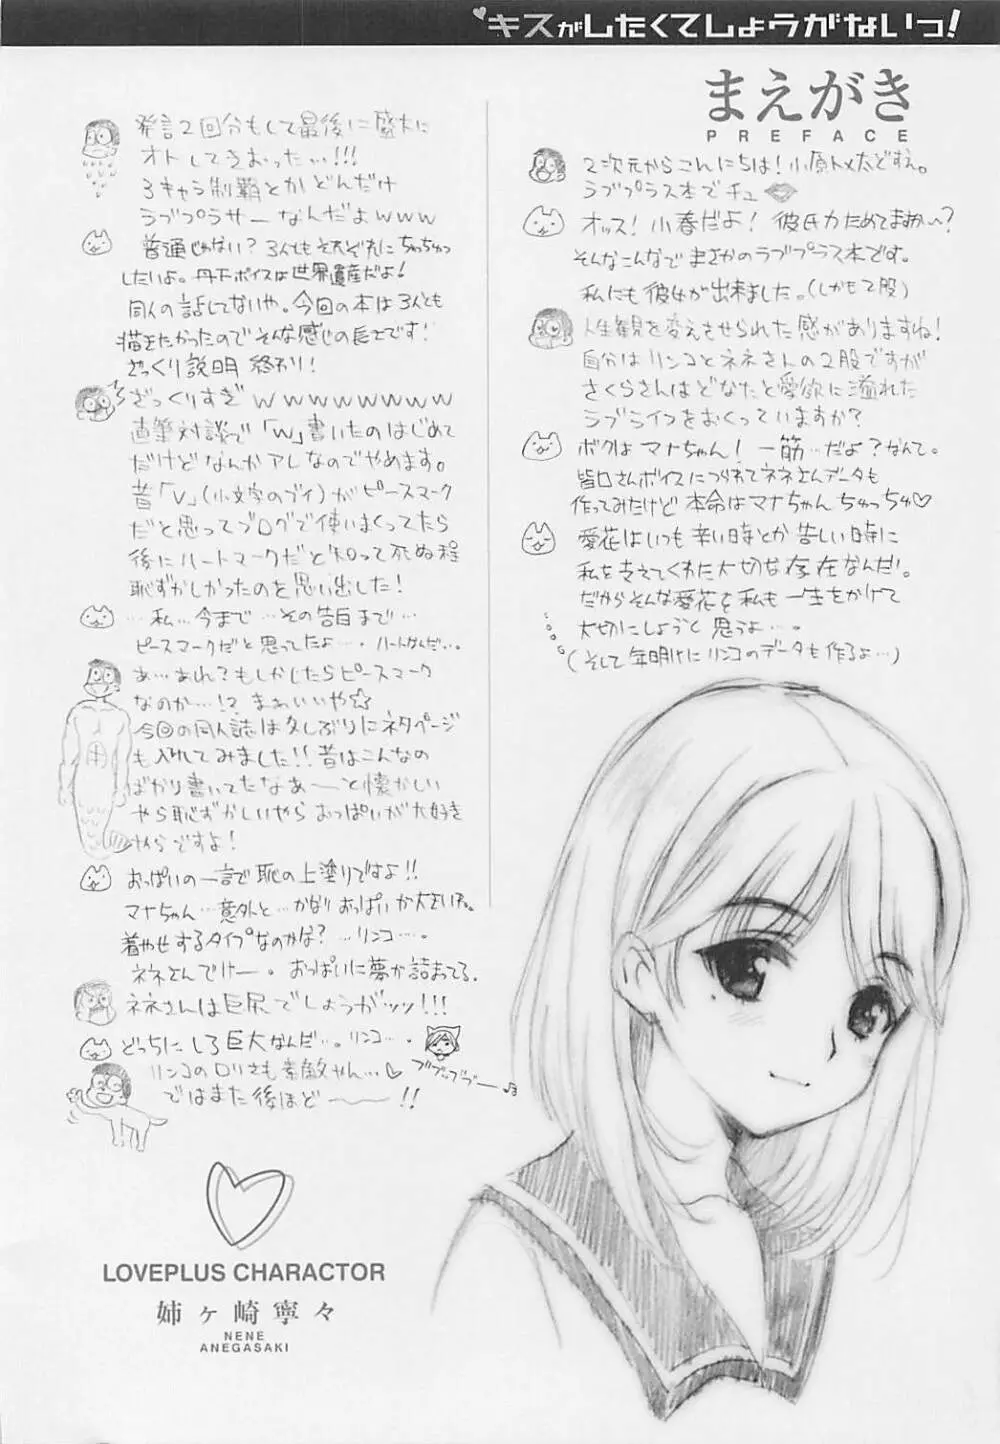 キスがしたくてしょうがないっ!
まえがき
PREFACE
2次元からこんにちは!小原トメ太どすえ。
ラブプラス本でチュ
オッス!小春だよ!彼氏力ためてますか〜?
そんなこんなでまさかのラブプラス本です。
私にも彼女が出来ました。(しかも2股)
人生観を変えさせられた感がありますね!
自分はリンコとネネさんの2股ですが
さくらさんはどなたと愛欲に溢れた
ラブライフをおくっていますか?
ボクはマナちゃん!一筋…だよ?なんて。
皆口さんボイスにつられてネネさんデータも
作ってみたけど本命はマナちゃんちゅっちゅ♡
愛花はいつも辛い時とか苦しい時に
私を支えてくれた大切な存在なんだ!。
だからそんな愛花を私も一生をかけて
大切にしようと思うよ…。
(そして年明けにリンコのデータも作るよ…)
発言2回分もして最後に盛大に
オトしてきおったぃ!!!
3キャラ制覇とかどんだけ
ラブプラサーなんだよwww
普通じゃない?3人ともそれぞれにちゅっちゅっ
したいよ。丹下ボイスは世界遺産だよ!
同人の話してないや。今回の本は3人とも
描きたかったのでそんな感じの長さです!
ざっくり説明終わり!
ざっくりすぎwwwwwwww
直筆対談で「w」書いたのはじめて
だけどなんかアレなのでやめます。
昔「v」(小文字のブイ)がピースマーク
だと思ってブログで使いまくってたら
後にハートマークだと知って死ぬ程
恥ずかしかったのを思い出した!
…私…今まで…その告白まで…
ピースマークだと思ってたよ…。ハートなんだ…。
あ…あれ?もしかしたらピースマーク
なのか…!?まぁいいや☆
今回の同人誌は久しぶりにネタページ
も入れてみました!!昔はこんなの
ばかり書いてたなあーと懐かしい
やら恥ずかしいやらおっぱいが大好き
やらですよ!
おっぱいの一言で恥の上塗りですよ!!
マナちゃん…意外と…かなりおっぱいが大きいね。
着やせするタイプなのかな?…リンコ…。
ネネさんでけー。おっぱいに夢が詰まってる。
ネネさんは巨尻でしょうがッッ!!!
どっちにしろ巨大なんだ…。リンコ…。
リンコのロリさも素敵やん…♡
ブブッブブー♪
ではまた後ほど〜!!
LOVEPLUS CHARACTOR
姉ヶ崎寧々
NENE
ANEGASAKI